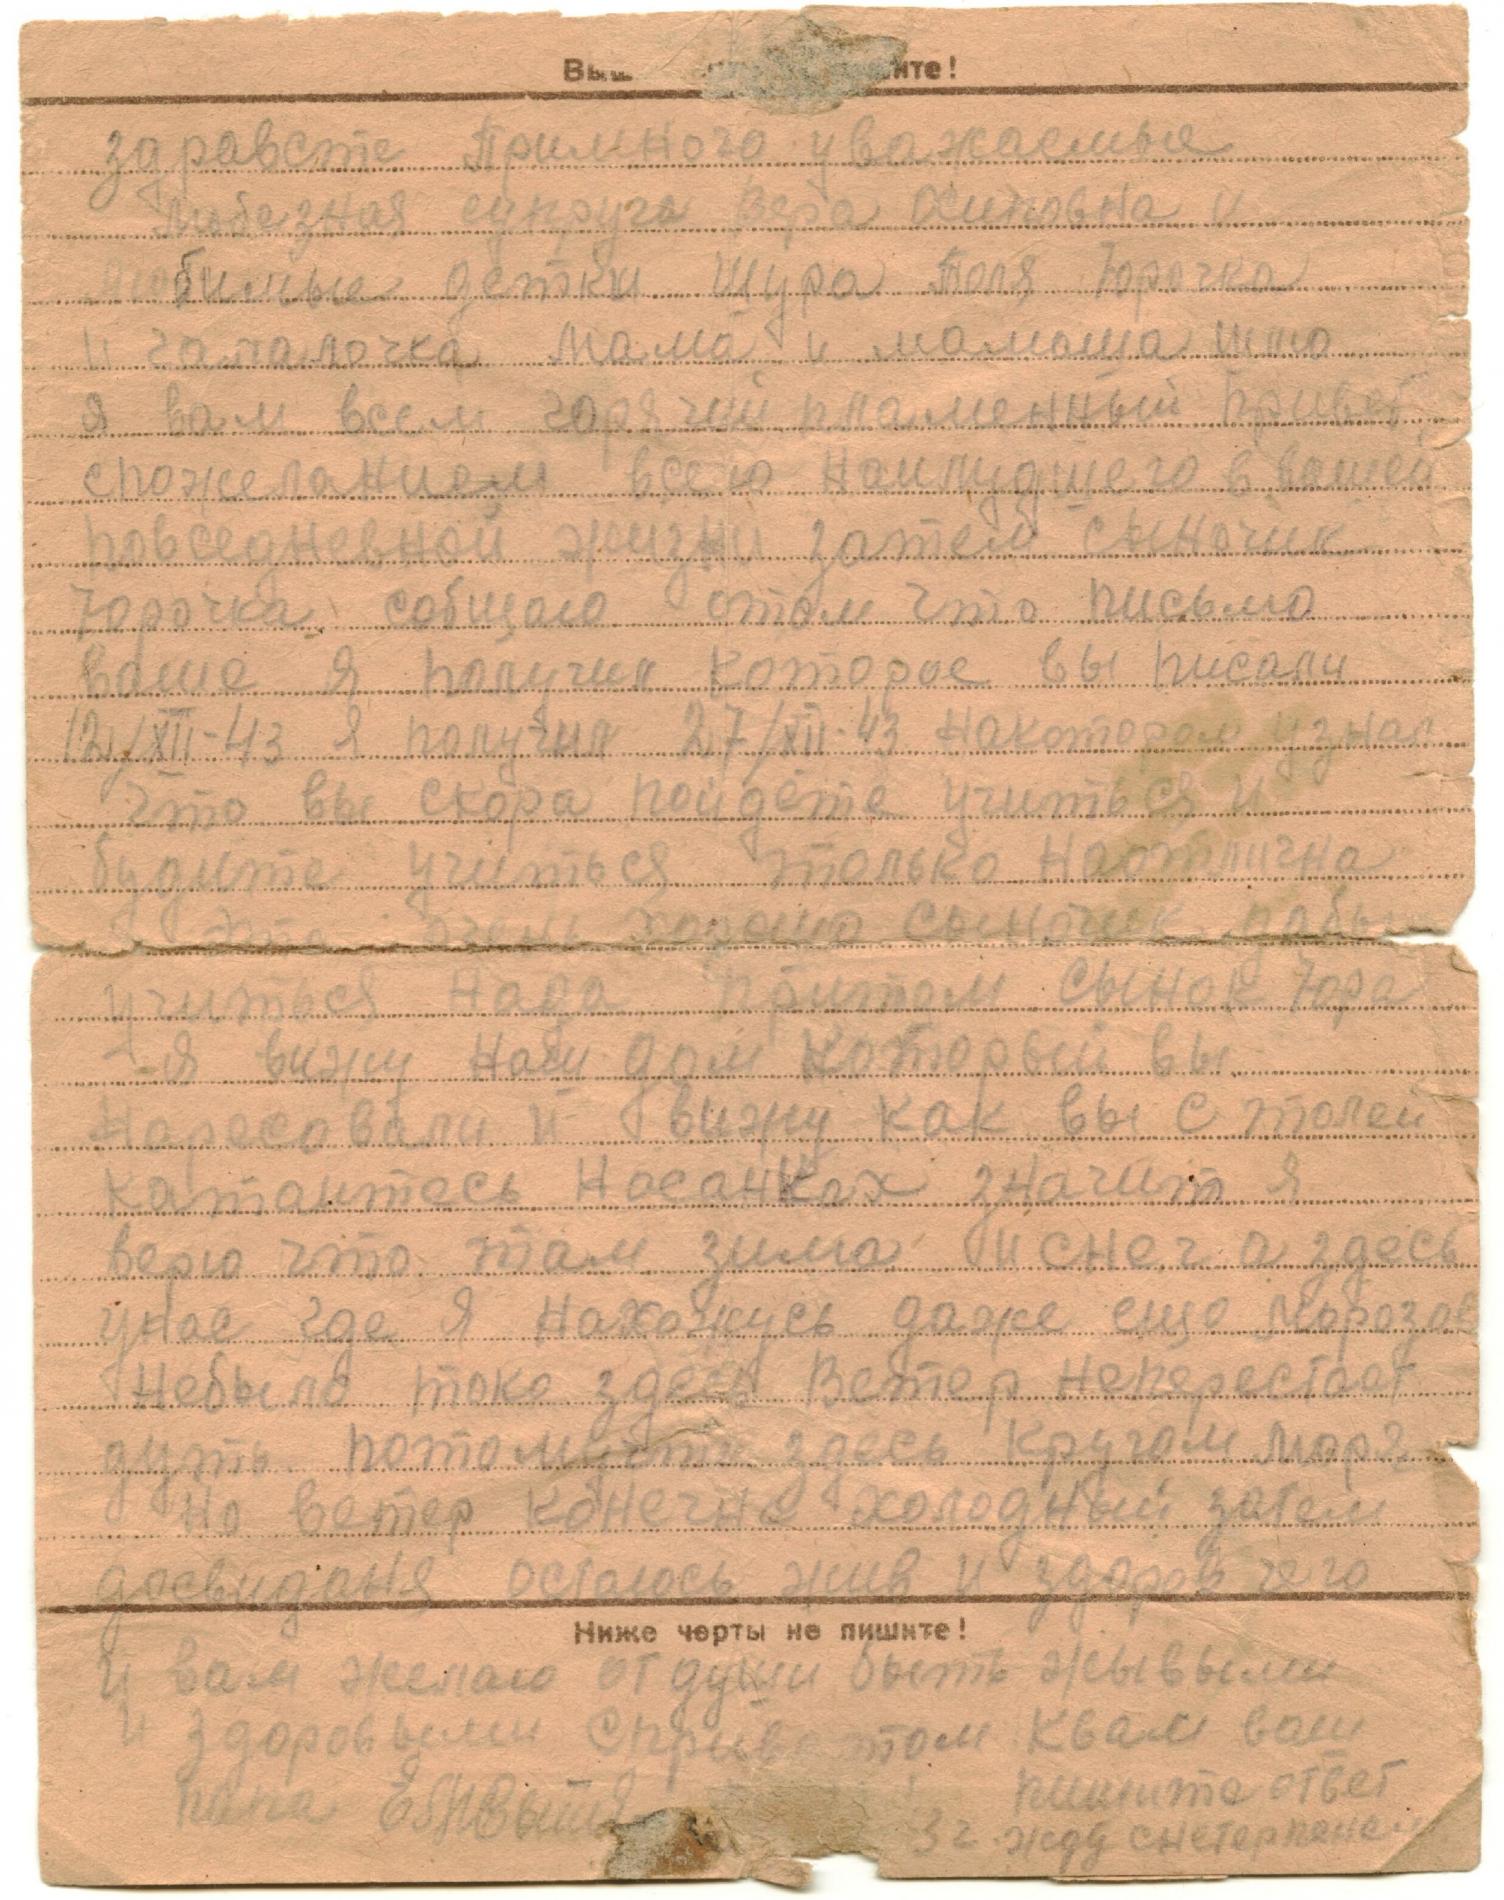 Выш пишите!
здравсте Примного уважаемые
любезная супруга Вера Осиповна и
любимые детки Шура Толя Юрочка
и галалочка мама и мамаша шлю
я вам всем горячий пламенный привет
спожеланиям всего наилудшего в вашей
повседневной жизни затем сыночик
Юрочка собщаю отом что письмо
ваше я получил которое вы писали
12/XII-43 я получил 27/XII-43 накотором узнал
что вы скора пойдете учиться и
будите учиться только наотлична
это очень хорошо сыночик дабы
учиться нада притом сынок Юра
я вижу наш дом который вы
наресовали и вижу как вы с толей
катаитесь насанках значит я
верю что там зима и снег а здесь
унас где я нахожусь даже еще морозов
небыло тока здесь ветер неперестает
дуть потомучто здесь кругом моря
но ветер конечно холодный затем
досвиданя осталось жив и здоров чего
Ниже черты не пишите!
и вам желаю от души быть жывыми
и здоровыми Сприветом Квам ваш
папа пишите ответ
жду снетерпением